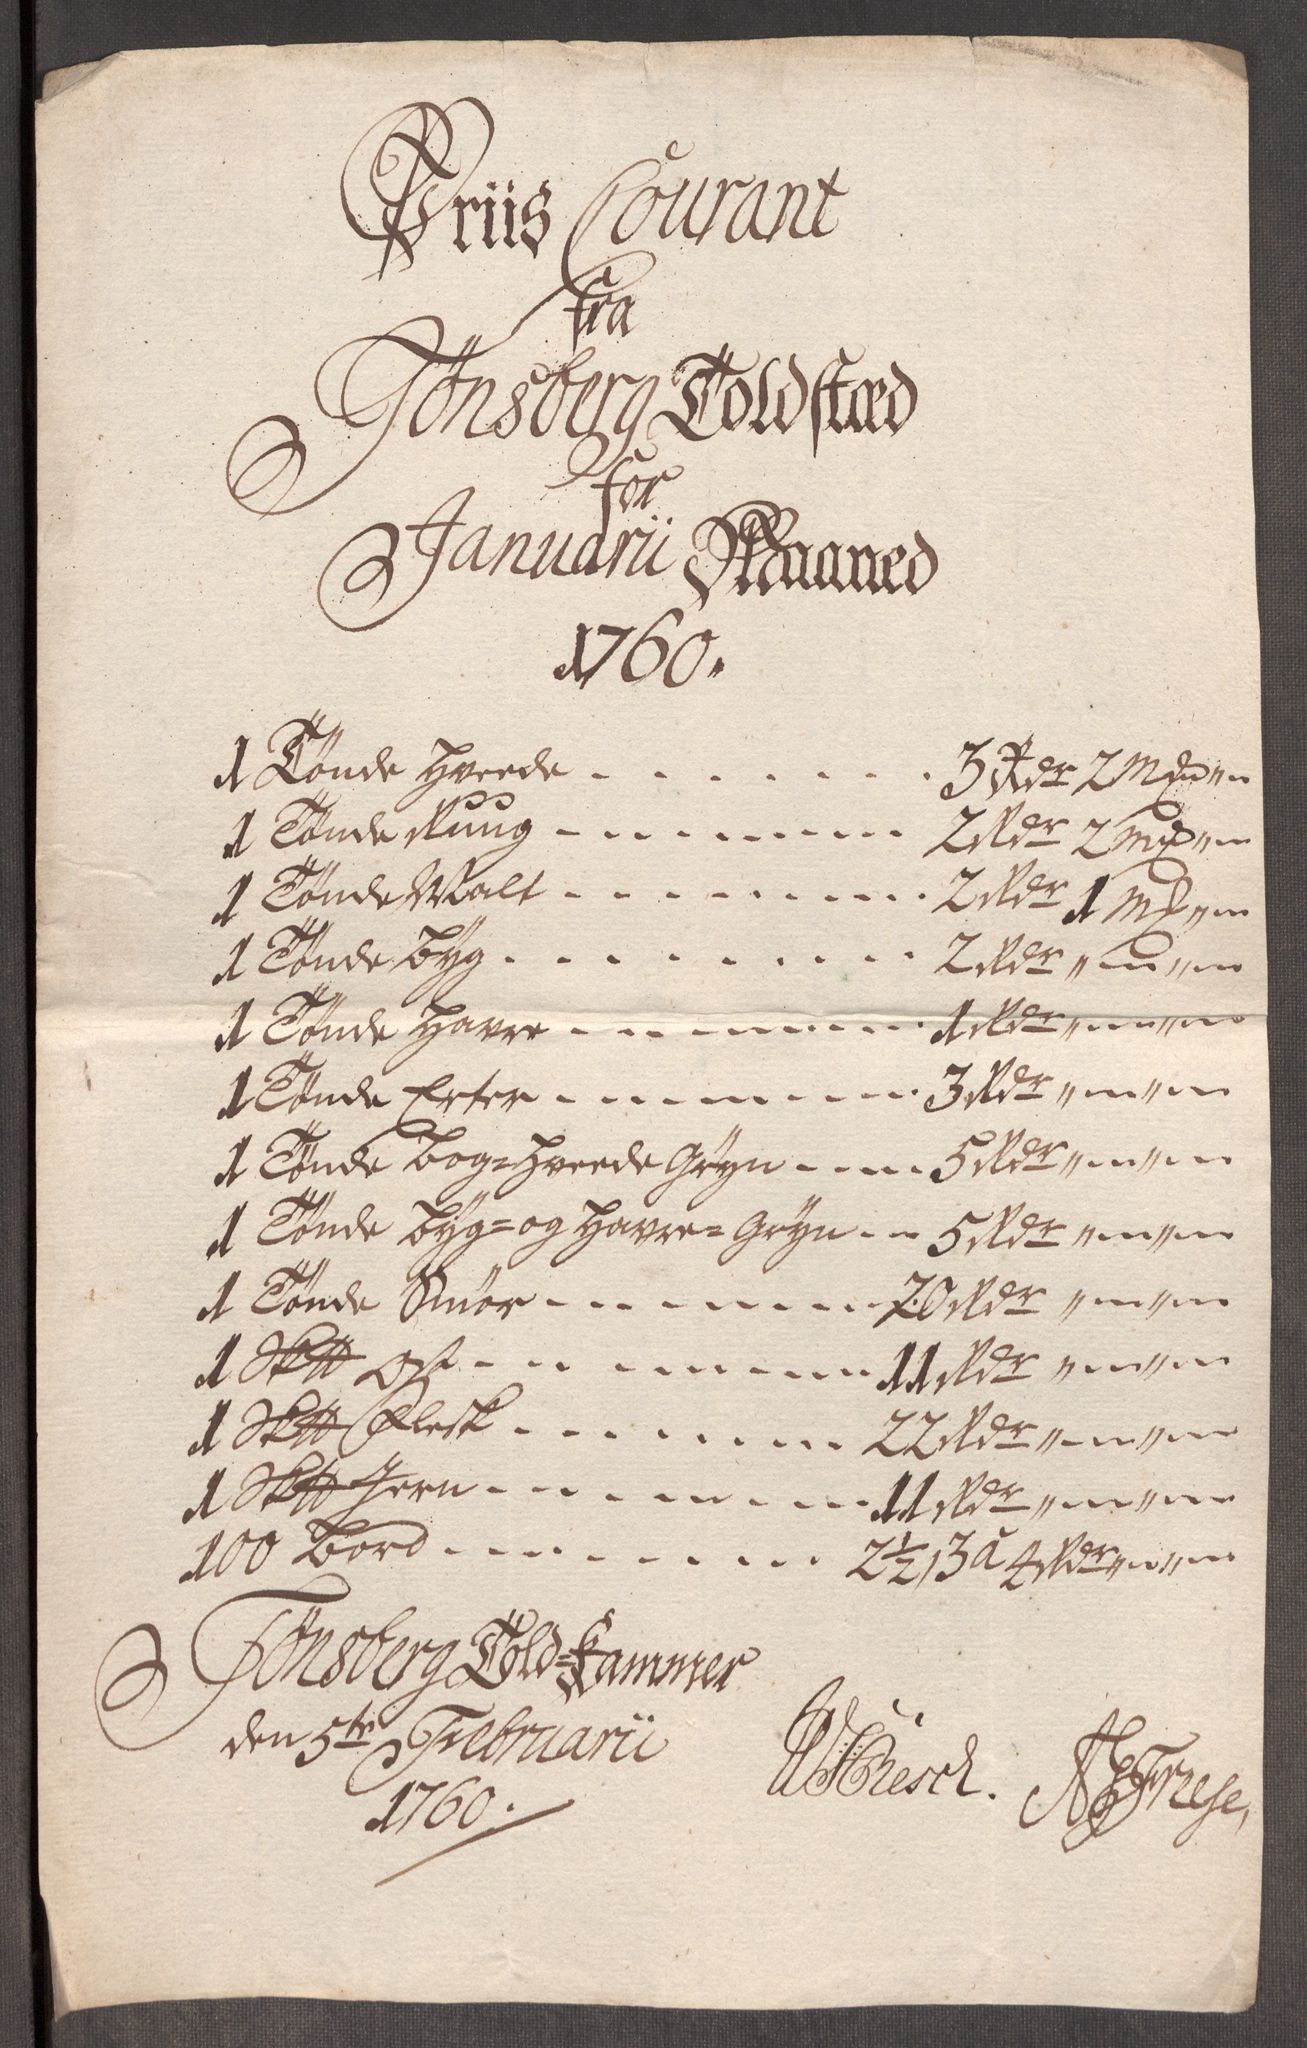 Priis Courant
fra
Tönsberg Toldstæd
for
Januarii Maaned
1760.
1 Tönde Hveede - - - - - - - 3 Rdr 2 Mk " -
1 Tönde Ruug - - - - - - - 2 Rdr 2 Mk " -
1 Tönde Malt - - - - - - - 2 Rdr 1 Mk " -
1 Tönde Byg - - - - - - - 2 Rdr " - " -
1 Tönde Havre - - - - - - - 1 Rdr " - " -
1 Tönde Erter - - - - - - - 3 Rdr " - " -
1 Tönde Bog=Hveede Gryn - - - - 5 Rdr " - " -
1 Tönde Byg= og Havre= Gryn - - 5 Rdr " - " -
1 Tönde Smör - - - - - - - 20 Rdr " - " -
1 Sk℔ Ost - - - - - - - 11 Rdr " - " -
1 Sk℔ Flesk - - - - - - - 22 Rdr " - " -
1 Sk℔ Jern - - - - - - - 11 Rdr " - " -
100 Bord - - - - - - - 2½, 3 à 4 Rdr " - " -
Tönsberg Told=Kammer
den 5te Februarii
1760.
Resch. Friese,